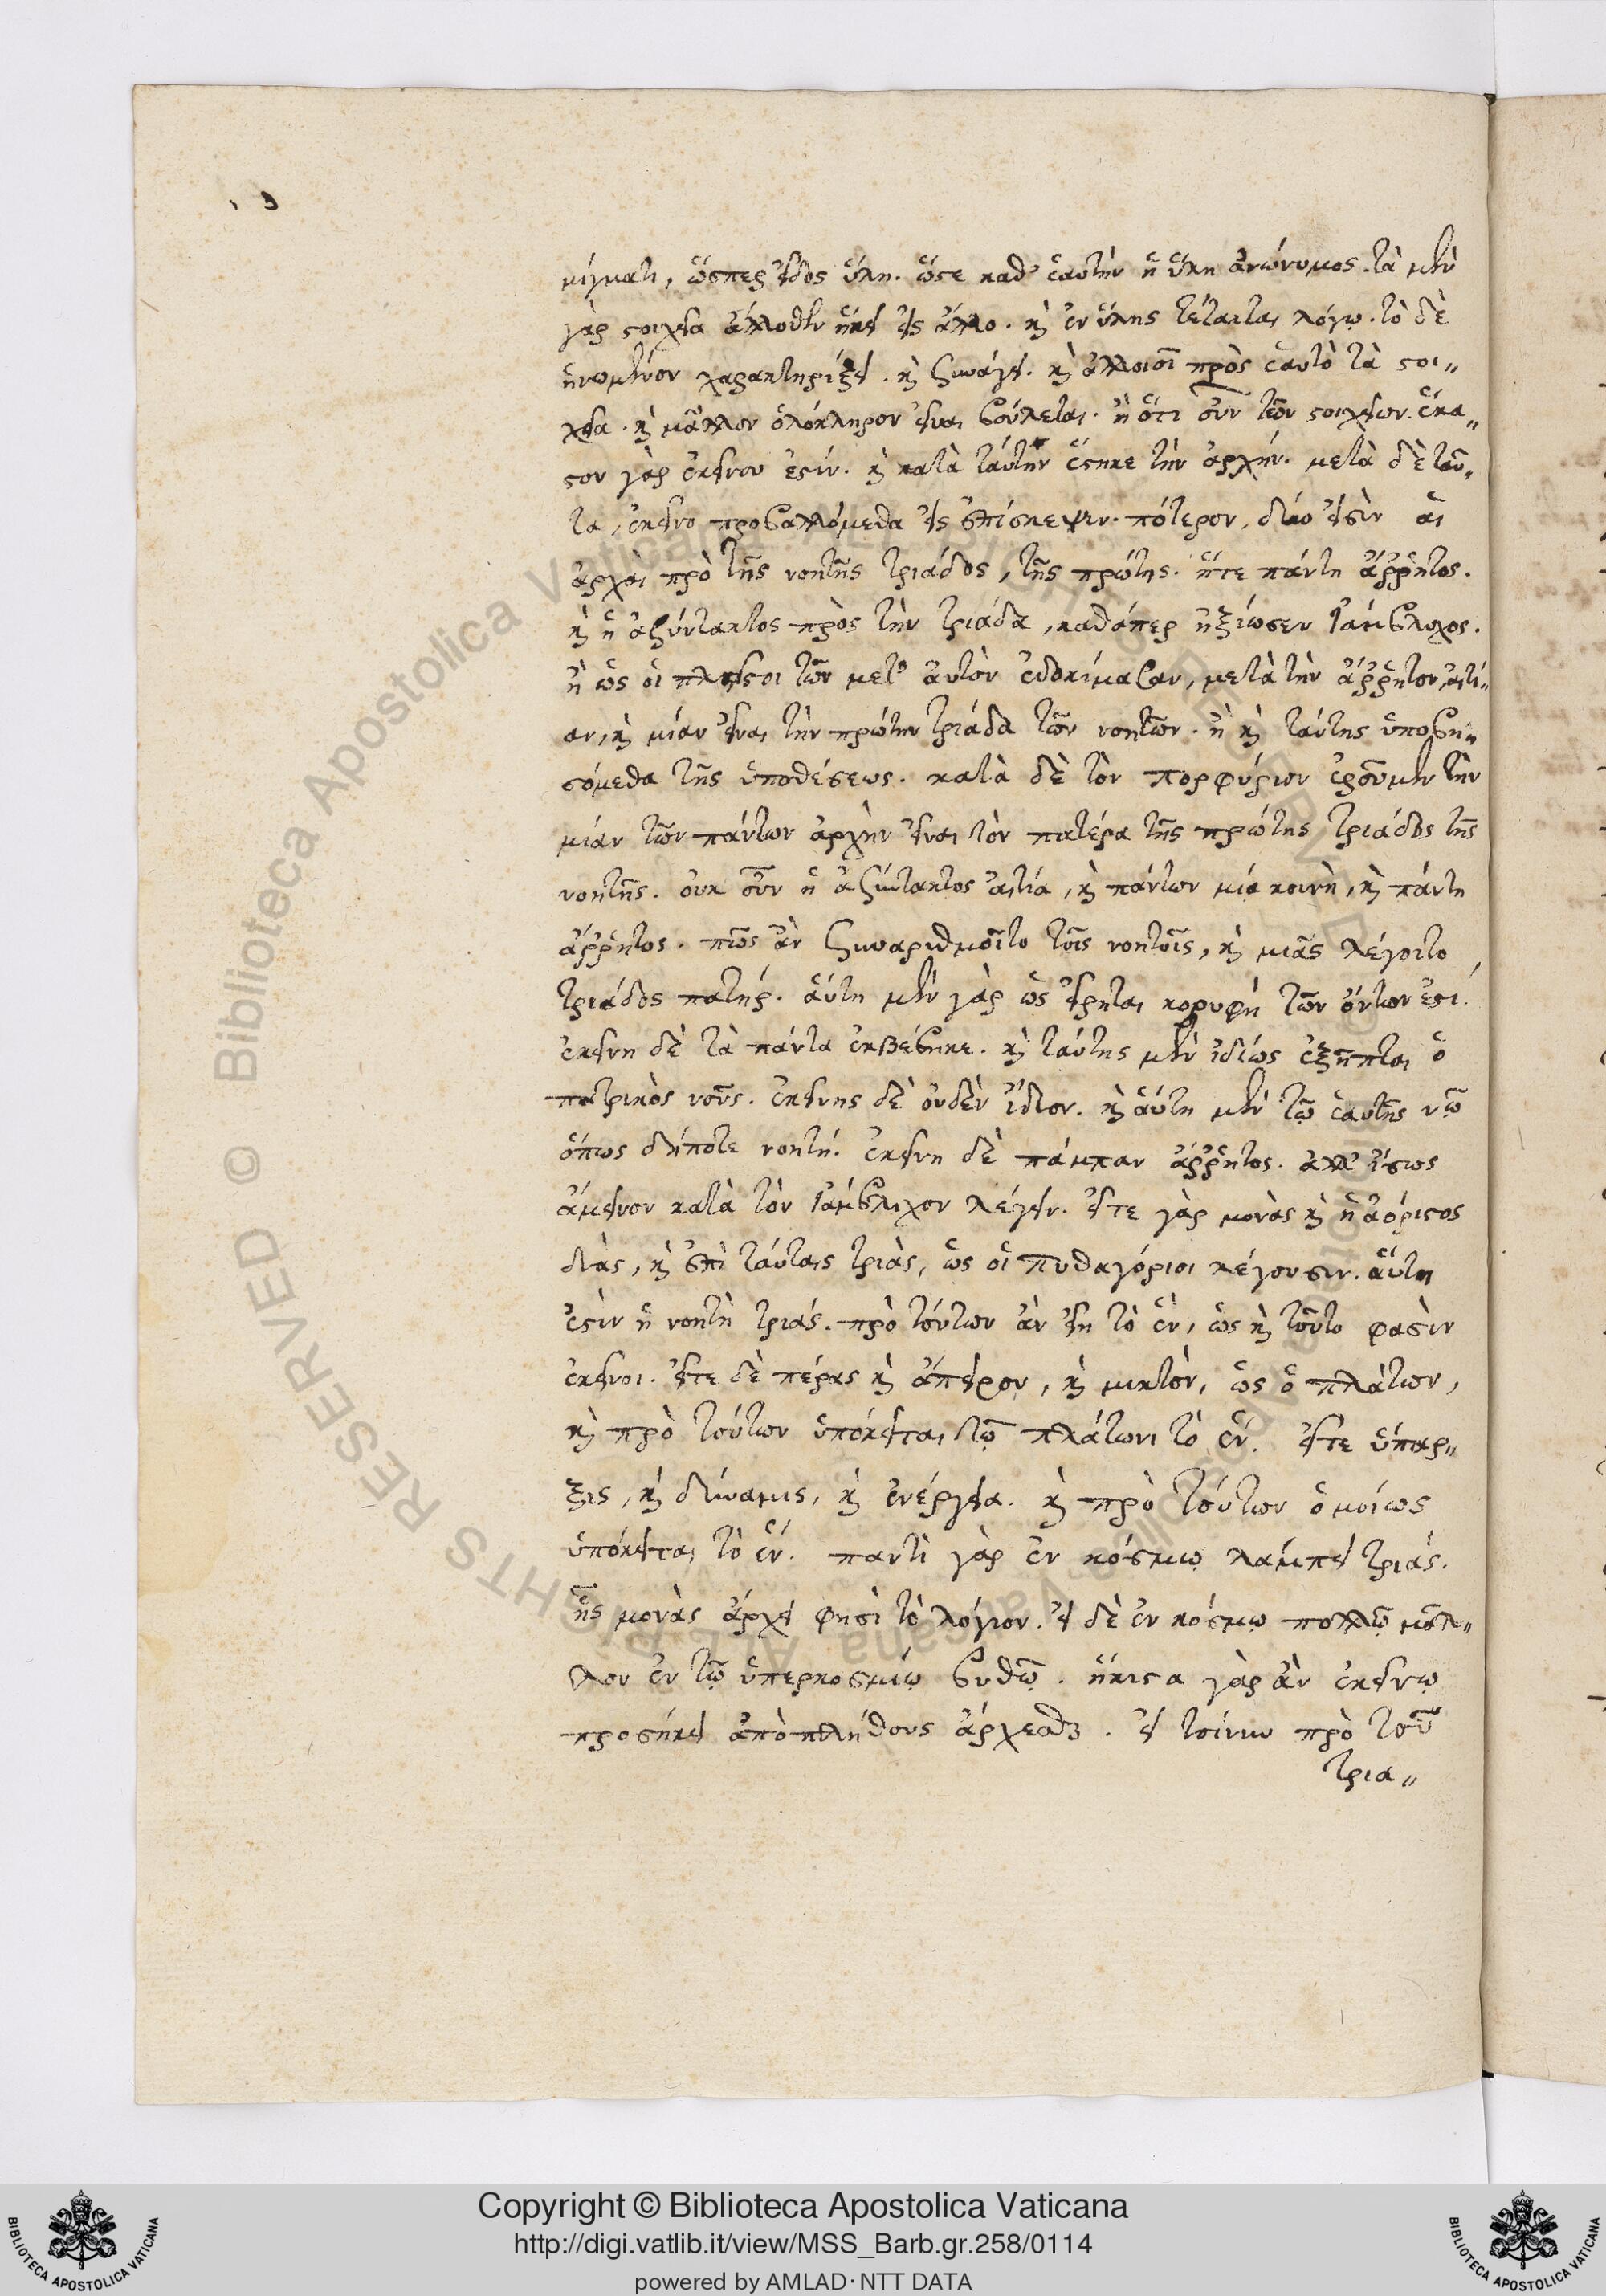 μίγματι, ὥσπερ εἶδος ὕλη. ὥστε καθ' ἑαυτὴν ἡ ὕλη ἀνώνυμος. τὰ μὲν
γὰρ στοιχεῖα ἄλλοθεν ἥκει εἰς ἄλλο. καὶ ἐν ὕλης τέτακται λόγῳ. τὸ δὲ
ἡνωμένον χαρακτηρίζει. καὶ συνάγει. καὶ ἀλλοιοῖ πρὸς ἑαυτὸ τὰ στοι„
χεῖα. καὶ μᾶλλον ὁλόκληρον εἶναι βούλεται. ἢ ὅτι οὖν τῶν στοιχείων. ἕκα„
στον γὰρ ἐκείνου ἐστίν. καὶ κατὰ ταύτην ἕστηκε τὴν ἀρχήν. μετὰ δὲ ταῦ„
τα, ἐκεῖνο προβαλλόμεθα εἰς ἐπίσκεψιν. πότερον, δύο εἰσὶν αἱ
ἀρχαὶ πρὸ τῆς νοητῆς τριάδος, τῆς πρώτης. ἥτε πάντη ἄῤῥητος.
καὶ ἡ ἀσύντακτος πρὸς τὴν τριάδα, καθάπερ ἠξίωσεν Ἰάμβλιχος.
ἢ ὡς οἱ πλεῖστοι τῶν μετ' αὐτὸν ἐδοκίμασαν, μετὰ τὴν ἄῤῥητον αἰτί„
αν, καὶ μίαν εἶναι τὴν πρώτην τριάδα τῶν νοητῶν. ἢ καὶ ταύτης ὑποβη„
σόμεθα τῆς ὑποθέσεως. κατὰ δὲ τὸν πορφύριον ἐροῦμεν τὴν
μίαν τῶν πάντων ἀρχὴν εἶναι τὸν πατέρα τῆς πρώτης τριάδος τῆς
νοητῆς. οὐκ οὖν ἡ ἀσύντακτος αἰτία, καὶ πάντων μία κοινὴ, καὶ πάντη
ἄῤῥητος. πῶς ἂν συναριθμοῖτο τοῖς νοητοῖς, καὶ μιᾶς λέγοιτο
τριάδος πατήρ. αὕτη μὲν γὰρ ὡς εἴρηται κορυφὴ τῶν ὄντων ἐστί.
ἐκείνη δὲ τὰ πάντα ἐκβέβηκε. καὶ ταύτης μὲν ἰδίως ἐξῆπται ὁ
πατρικὸς νοῦς. ἐκείνης δὲ οὐδὲν ἴδιον. καὶ αὕτη μὲν τῷ ἑαυτῆς νῷ
ὅπως δήποτε νοητή. ἐκείνη δὲ πάμπαν ἄῤῥητος. ἀλλ' ἴσως
ἄμεινον κατὰ τὸν Ἰάμβλιχον λέγειν. εἴτε γὰρ μονὰς καὶ ἡ ἀόριστος
δυὰς, καὶ ἐπὶ ταύταις τριὰς, ὡς οἱ Πυθαγόριοι λέγουσιν. αὕτη
ἐστὶν ἡ νοητὴ τριάς. πρὸ τούτων ἂν εἴη τὸ ἓν, ὡς καὶ τοῦτο φασὶν
ἐκεῖνοι. εἴτε δὲ πέρας καὶ ἄπειρον, καὶ μικτὸν, ὡς ὁ πλάτων,
καὶ πρὸ τούτων ὑπόκειται τῷ πλάτωνι τὸ ἕν. εἴτε ὕπαρ„
ξις, καὶ δύναμις, καὶ ἐνέργεια. καὶ πρὸ τούτων ὁμοίως
ὑπόκειται τὸ ἕν. παντὶ γὰρ ἐν κόσμῳ λάμπει τριάς.
ἧς μονὰς ἄρχει φησὶ τὸ λόγιον. εἰ δὲ ἐν κόσμῳ πολλῷ μᾶλ„
λον ἐν τῷ ὑπερκοσμίῳ βυθῷ. ἥκιστα γὰρ ἂν ἐκείνῳ
προσήκει ἀπὸ πλήθους ἄρχεσθαι. εἰ τοίνυν πρὸ τοῦ
τρια„
Copyright © Biblioteca Apostolica Vaticana
http://digi.vatlib.it/view/MSS_Barb.gr.258/0114
powered by AMLAD·NTT DATA
BIBLIOTECA APOSTOLICA VATICANA
BIBLIOTECA APOSTOLICA VATICANA